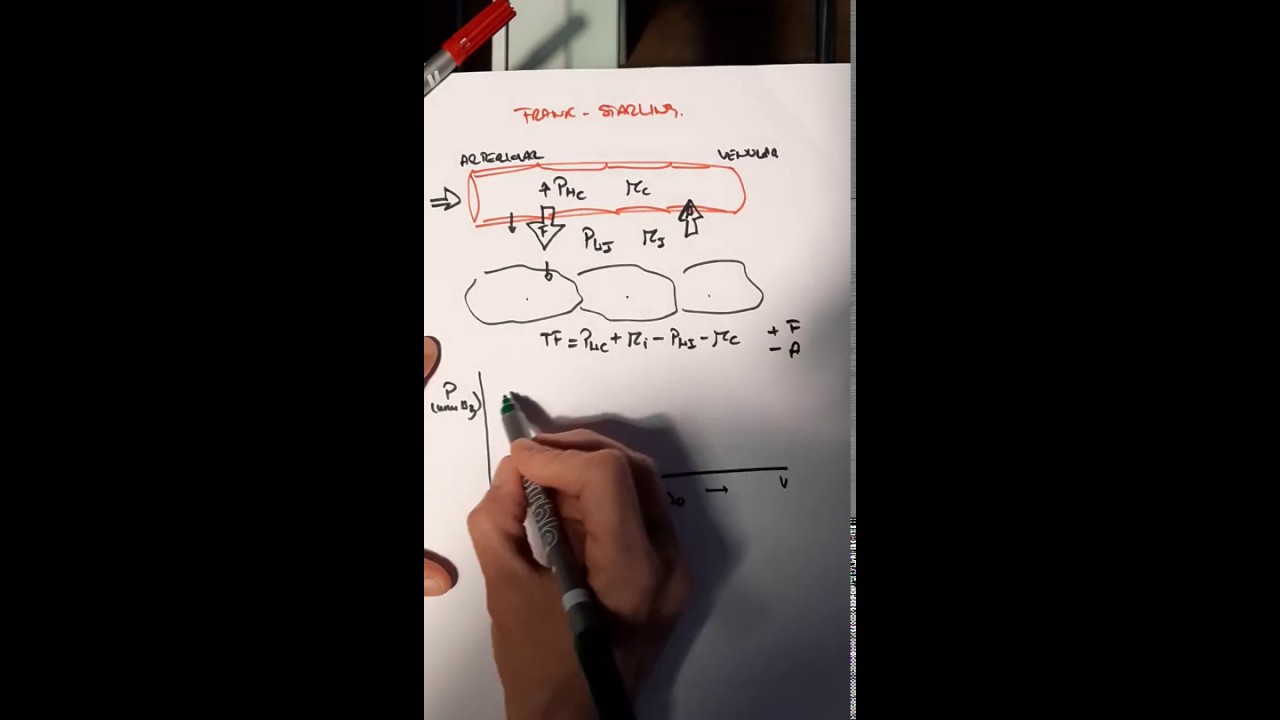 FRANK - STARLING.
ARTERIOLAR VENULAR
PHC πC
F
PHI πI
TF = PHC + πi - PHI - πC
+ F
- A
P
(mmHg)
V